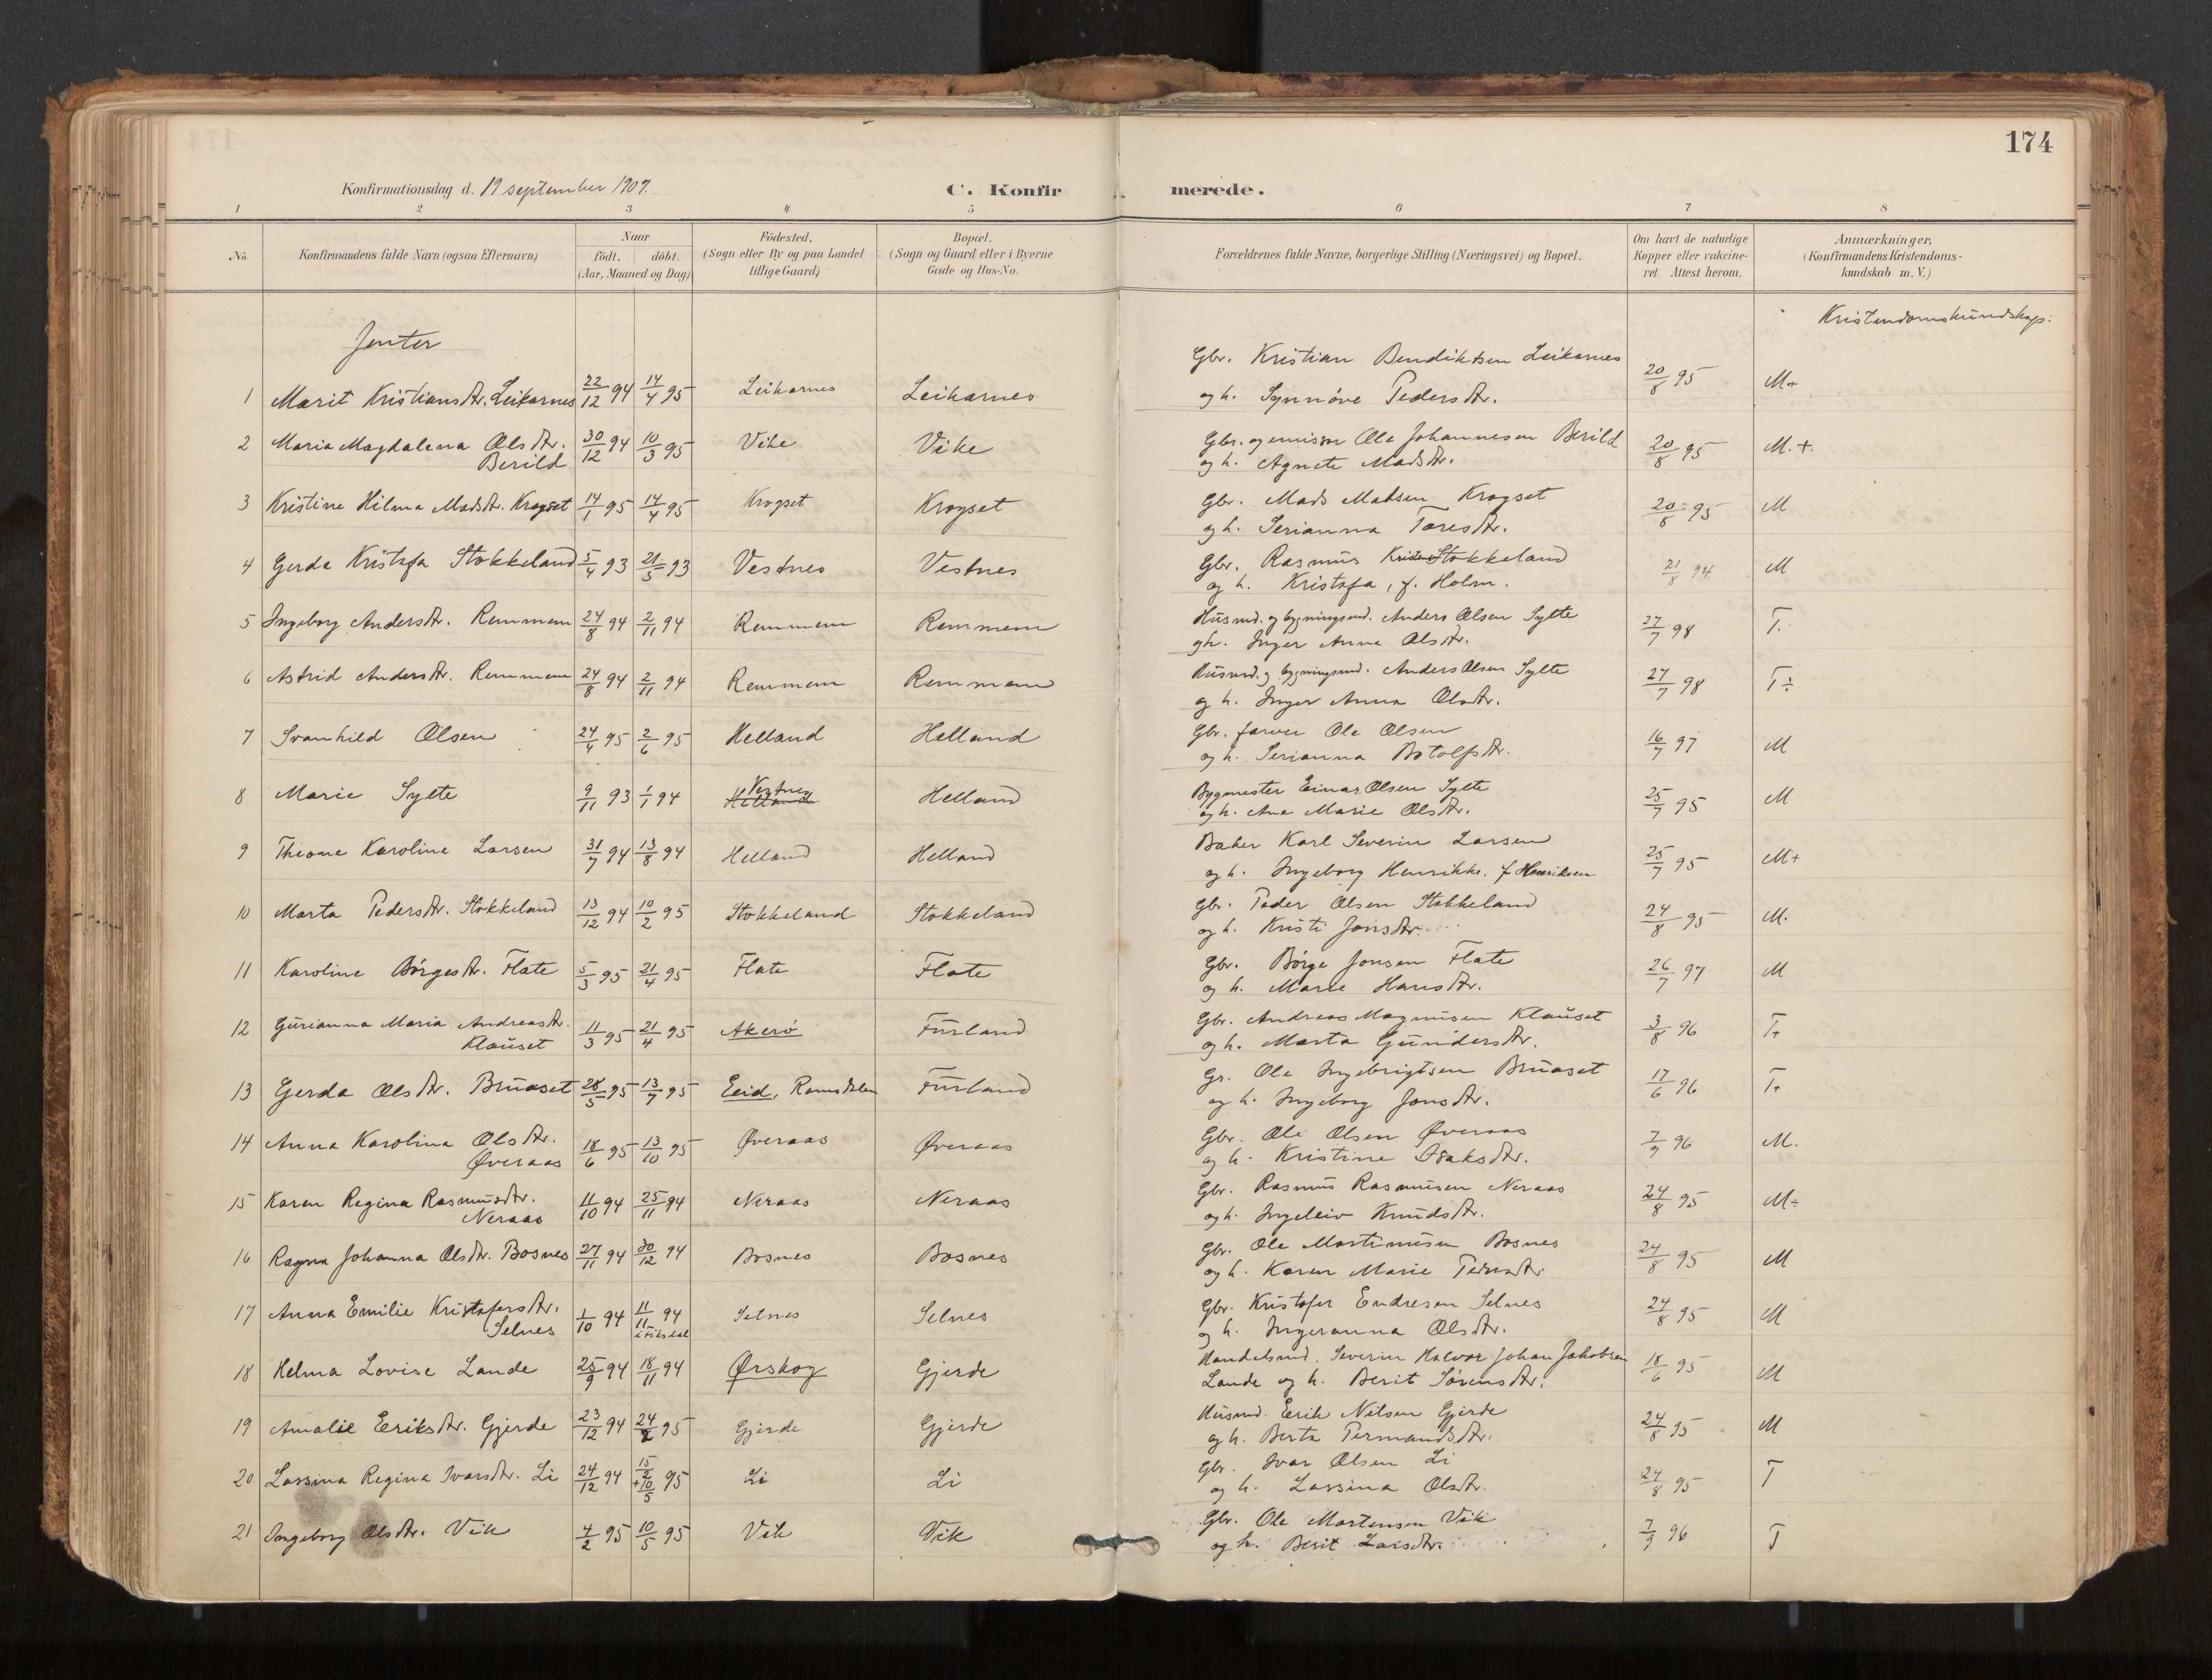 174
Konfirmationsdag d. 19 september 1909.
C. Konfirmerede.
1 2 3 4 5 6 7 8
No. Konfirmandens fulde Navn (ogsaa Efternavn) Naar födt. döbt. (Aar, Maaned og Dag) Födested. (Sogn eller By og paa Landet tillige Gaard) Bopæl. (Sogn og Gaard eller i Byerne Gade og Hus-No. Forældrenes fulde Navne, borgerlige Stilling (Næringsvei) og Bopæl. Om havt de naturlige Kopper eller vakcineret Attest herom. Anmærkninger. (Konfirmandens Kristendomskundskab m. V.)
Kristendomskundskap:
Jenter
1 Marit Kristiansdtr. Leikarnes 22/12 94 14/4 95 Leikarnes Leikarnes Gbr. Kristian Bendiktsen Leikarnes
og h. Synnöve Pedersdtr. 20/8 95 M+
2 Maria Magdalena Olsdtr. Berild 30/12 94 10/3 95 Vike Vike Gbr. og emissær Ole Johannesen Berild
og h. Agnete Madsdtr. 20/8 95 M.+
3 Kristine Hilma Madsdtr. Krogset 14/1 95 14/4 95 Krogset Krogset Gbr. Mads Madsen Krogset
og h. Serianna Taresdtr. 20/8 95 M
4 Gerda Kristofa Stokkeland 5/4 93 21/5 93 Vestnes Vestnes Gbr. Rasmus Stokkeland
og h. Kristofa, f. Holm. 21/8 94. M
5 Ingeborg Andersdtr. Remmem 24/8 94 2/11 94 Remmem Remmem Husmd. og bygningsmd. Anders Olsen Sylte
og h. Inger Anna Olsdtr. 27/7 98 T.
6 Astrid Andersdtr. Remmem 24/8 94 2/11 94 Remmem Remmem Husmd. og bygningsmd. Anders Olsen Sylte
og h. Inger Anna Olsdtr. 27/7 98 T÷
7 Svanhild Olsen 24/4 95 2/6 95 Helland Helland Gbr. farver Ole Olsen
og h. Serianna Botolfsdtr. 16/7 97 M
8 Marie Sylte 9/11 93 1/1 94 Vestnes Helland Helland Bygmester Einar Olsen Sylte
og h. Ane Marie Olsdtr. 25/7 95 M
9 Theone Karoline Larsen 31/7 94 13/8 94 Helland Helland Baker Karl Severin Larsen
og h. Ingeborg Henrikke. f Henriksen 25/7 95 M+
10 Marta Pedersdtr. Stokkeland 13/12 94 10/2 95 Stokkeland Stokkeland Gbr. Peder Olsen Stokkeland
og h. Kristi Jonsdtr. 24/8 95 M.
11 Karoline Börgesdtr. Flate 5/3 95 21/4 95 Flate Flate Gbr. Börge Jonsen Flate
og h. Marie Hansdtr. 26/7 97 M
12 Gurianna Maria Andreasdtr. Klauset 11/3 95 21/4 95 Akerö Furland Gbr. Andreas Magnusen Klauset
og h. Marta Gundersdtr. 3/8 96 T+
13 Gerda Olsdtr. Bruaset 28/5 95 13/7 95 Eid, Romsdalen Furland Gr. Ole Ingebrigtsen Bruaset
og h. Ingeborg Jonsdtr. 17/6 96 T+
14 Anna Karolina Olsdtr. Øveraas 18/6 95 13/10 95 Øveraas Øveraas Gbr. Ole Olsen Øveraas
og h. Kristine Isaksdtr. 7/9 96 M.
15 Karen Regina Rasmusdtr. Neraas 11/10 94 25/11 94 Neraas Neraas Gbr. Rasmus Rasmusen Neraas
og h. Ingeleiv Knudsdtr. 24/8 95 M÷
16 Ragna Johanna Olsdtr. Bosnes 27/11 94 30/12 94 Bosnes Bosnes Gbr. Ole Martinusen Bosnes
og h. Karen Marie Pedersdtr. 24/8 95 M
17 Anna Emilie Kristofersdtr. Selnes 1/10 94 11/11 94 Selnes Selnes Gbr. Kristofer Endresen Selnes
og h. Ingeranna Olsdtr. 24/8 95 M
18 Helma Lovise Lande 25/9 94 18/11 94 Ørskog Gjerde Handelsmd. Severin Halvor Johan Jakobsen
Lande og h. Berit Sørensdtr. 18/6 95 M
19 Amalie Eriksdtr. Gjerde 23/12 94 24/2 95 Gjerde Gjerde Husmd. Erik Nilsen Gjerde
og h. Berta Permandsdtr. 24/8 95 M
20 Lassina Regina Ivarsdtr. Li 24/12 94 15/2 + 10/5 95 Li Li Gbr. Ivar Olsen Li
og h. Lassina Olsdtr. 24/8 95 T
21 Ingeborg Olsdtr. Vik 4/2 95 10/5 95 Vik Vik Gbr. Ole Martensen Vik
og h. Berit Larsdtr. 7/9 96 T